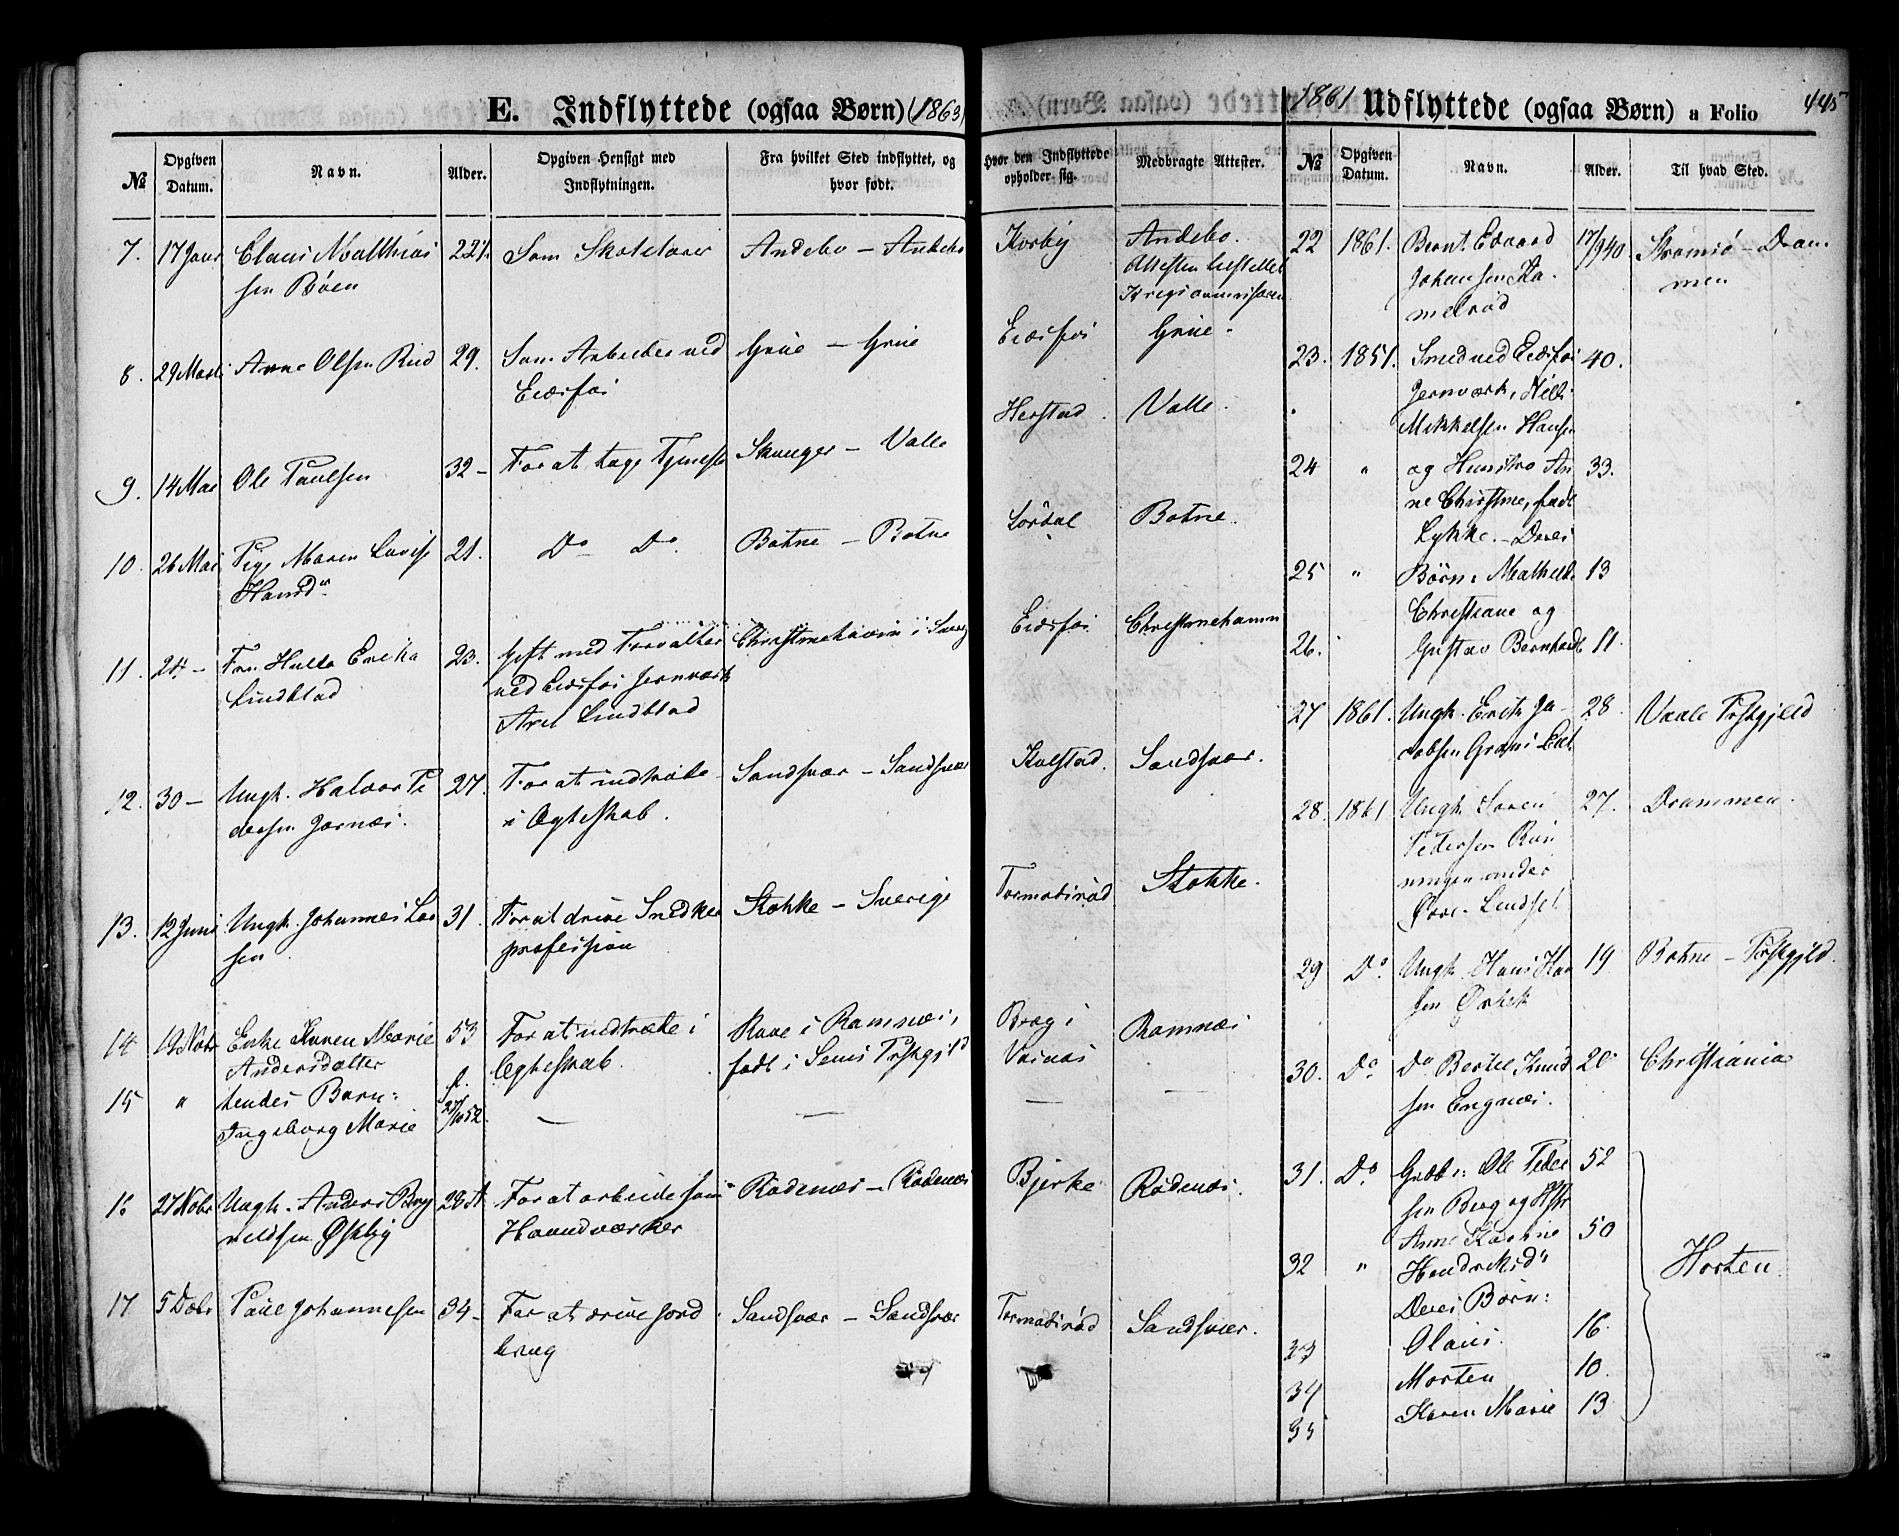 E. Indflyttede (ogsaa Børn) (1863)
№
Opgiven Datum.
Navn.
Alder.
Opgiven Hensigt med Indflytningen.
Fra hvilket Sted indflyttet, og hvor født.
Hvor den Indflyttede opholder sig.
Medbragte Attester.
7. 17 Janr
sen Bøen
22
Som Skolelærer
Andebo – Andebo
Andebo.
8. 29 Marti Anne Olsen Rud 29. Som Arbeider ved
Eidsfos
Grue – Grue
Eidsfos
Grue.
9. 14 Mai Ole Paulsen 32 – For at tage Tjeneste
Skauger – Valle
Herstad.
Valle.
10. 26 Mai Pige Maren Lovise
Hansdr
21.
Do Do.
Botne – Botne
Botne.
11. 24 –
Lindblad
23. Gift med Forvalter
ved Eidsfos Jernværk
Axel Lindblad
Christinehavn i Sverig
Eidsfos.
Christinehamn
12. 30 – Ungk. Halvor Pe
dersen Jarnæs.
27. For at indtræde
i Ægteskab.
Sandsvær – Sandsvær
Kolstad.
Sandsvær.
13. 12 Juni Ungk. Johannes Lar
sen
31. For at drive Snedker
profession
Stokke – Sverige
Tormodsrød
Stokke.
14 19 Nobr Enke Karen Marie
Andersdatter
53 For at indtræde i
Ægteskab.
Rove i Ramnæs,
født i Sems Prstgjld
Ramnæs
15 " hendes Barn:
Ingeborg Marie
f.
—
—
—
—
16 27 Nobr Ungk. Anders Bry
nildsen Østby
For at arbeide som
Haandværker
Rødenæs – Rødenæs
Bjerke
Rødenæs.
17 5 Decbr Paul Johannesen 34 – For at drive Jord
brug
Sandsvær – Sandsvær
Tormodsrød
Sandsvær.
1861 Udflyttede (ogsaa Børn) a Folio 445
№
Opgiven Datum.
Navn.
Alder.
Til hvad Sted.
22 1861. Bernt Edvard
Johansen Ka-
melrød
17/9 40.
Strømsø – Dram
men
23. 1851. Smed ved Eidsfos
Jernværk, Nils
Mikkelsen Hansen
40.
24 " og Hustro An
ne Christine, født
Lykke. – Deres
33.
25 " Børn: Mathilde
Christiane og
13
26. Gustav Bernhardt 11.
27 1861. Ungk. Erik Ja-
cobsen
28.
Vaale Prstgjeld
28. 1861 Ungk. Søren
Pedersen Røn
ningen under
27.
Drammen.
29 Do. Ungk. Hans Han
sen
19
Botne – Prstgjeld.
30. Do. Do Bertel Knud
sen Engnæs.
20
Christiania
31. Do. Ole Peder
sen Berg og Hstr
52
32 " Anne Karine
Hendriksdr
50
Deres Børn:
33 Olaus. 16.
34 Morten 10.
35 Karen Marie 13
Horten